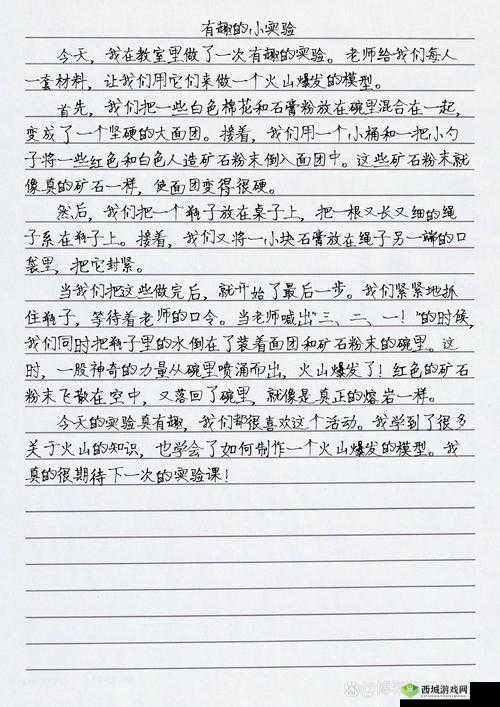 有趣的小实验
今天，我在教室里做了一次有趣的实验。老师给我们每人
一套材料，让我们用它们来做一个火山爆发的模型。
首先，我们把一些白色棉花和石膏粉放在碗里混合在一起，
变成了一个坚硬的大面团。接着，我们用一个小桶和一把小勺
子将一些红色和白色人造矿石粉末倒入面团中。这些矿石粉末就
像真的矿石一样，使面团变得很硬。
然后，我们把一个瓶子放在桌子上，把一根又长又细的绳
子系在瓶子上。接着，我们又将一小块石膏放在绳子另一端的口
袋里，把它封紧。
当我们把这些做完后，就开始了最后一步。我们紧紧地抓
住瓶子，等待着老师的口令。当老师喊出"三、二、一！"的时候，
我们同时把瓶子里的水倒在了装着面团和矿石粉末的碗里。这
时，一股神奇的力量从碗里喷涌而出，火山爆发了！红色的矿石
粉末飞散在空中，又落回了碗里，就像是真正的熔岩一样。
今天的实验真有趣，我们都很喜欢这个活动。我学到了很多
关于火山的知识，也学会了如何制作一个火山爆发的模型。我
真的很期待下一次的实验课！
西城游戏网